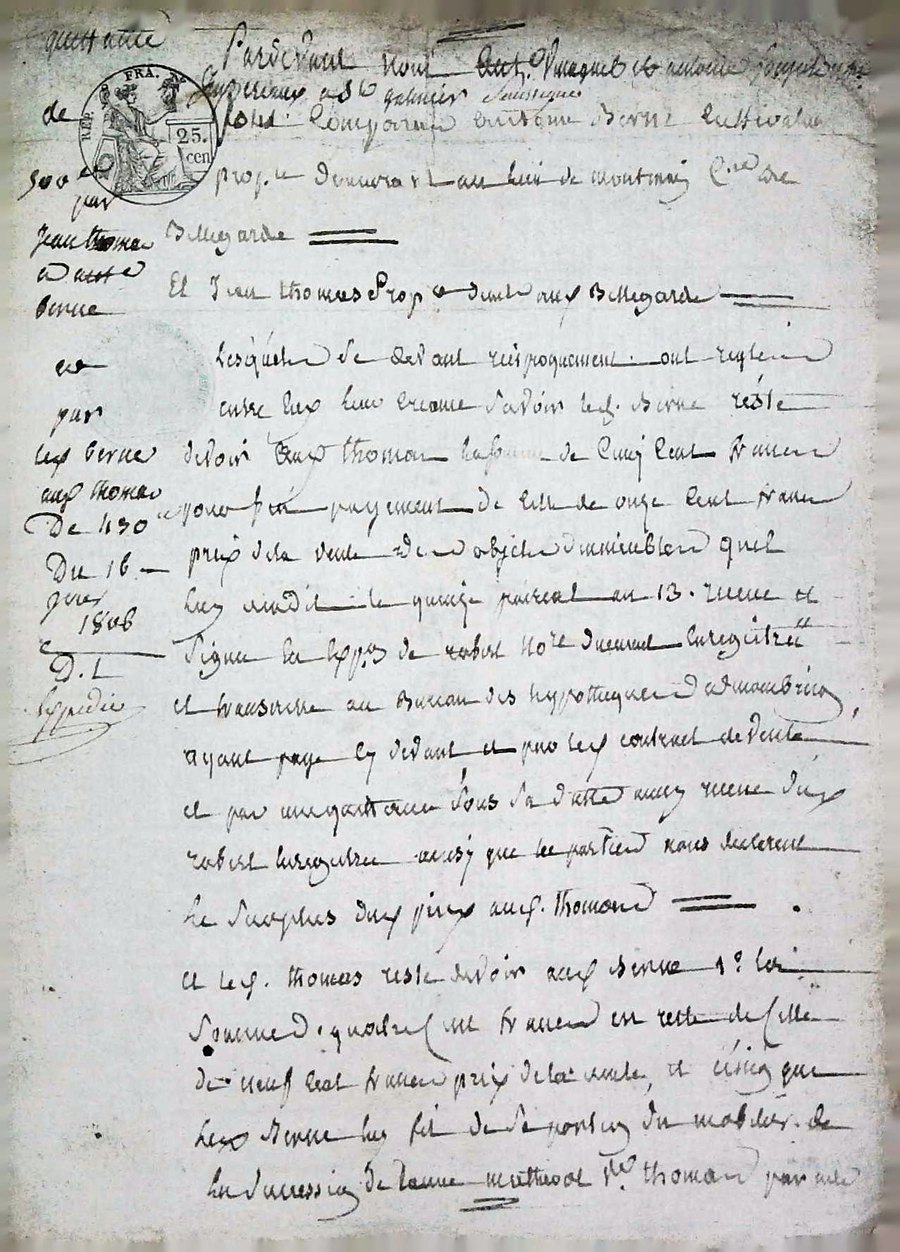 quittance
de
500
par
Jean thomas
a ant
Berne
et
par
led Berne
aud thomas
De 430
Du 16
1806
D. L
Expedié
REP. FRA.
25.
cen
Pardevant nous Ant. et antoine
Imperiaux a St galmier soussignés
sont Comparus antoine Berne Cultivateur
prop.re demeurant au lieu de montmey C.ne de
Bellegarde
Et Jean thomas Prop.re dudt Bellegarde
Lesquels de devant reciproquement ont reglé
entre eux leur savoir led. Berne reste
devoir aud thomas la somme de Cinq Cent francs
pour payement de celle de onze Cent francs
prix de la vente des objets d'immeubles quil
luy vendit le quinze prairial an 13. recue et
signé en exp.on de robert No.re Enregistré
et transcrit au Bureau des hypotheques de montbrison
ayant payé cy devant et par led contract de vente
et par une quittance sous sa datte aussy recue dud
robert enregistré ainsy que les parties nous declarent
le surplus dud prix aud. thomas
et led. thomas reste devoir aud Berne 1° la
somme de quatre Cent francs en reste de Celle
de neuf Cent francs prix de la vente, et que
led Berne luy fit de sa portion du mobilier de
la succession de V.e thomas par acte